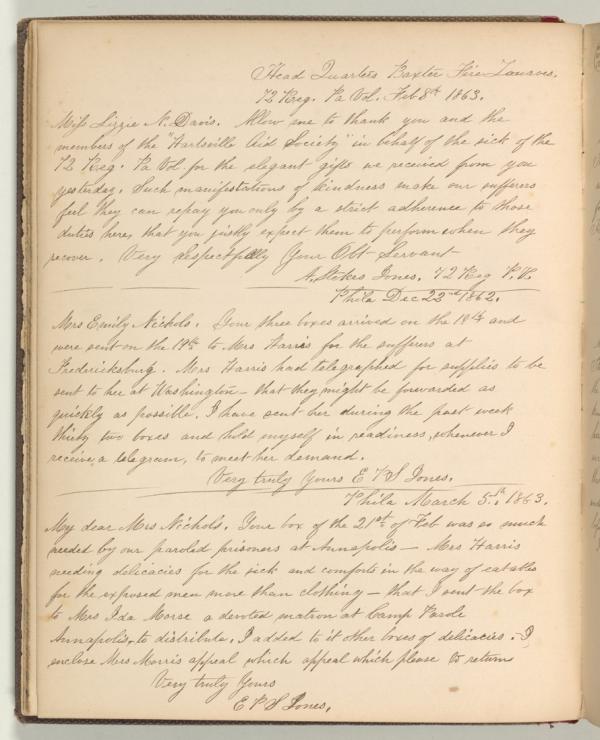 Head Quarters Baxter Fire Zouaves.
72 Reg. Pa Vol. Feb 8th 1863.
Miss Lizzie N. Davis. Allow me to thank you and the
members of the "Hartsville Aid Society" in behalf of the sick of the
72 Reg. Pa Vol. for the elegant gifts we received from you
yesterday. Such manifestations of kindness make our sufferers
feel they can repay you only by a strict adherence to those
duties here, that you justly expect them to perform when they
recover. Very respectfully Your Obt Servant
A. Stokes Jones. 72 Reg P.V.
Phila Dec 22nd 1862.
Mrs Emily Nichols. Your three boxes arrived on the 18th and
were sent on the 19th to Mrs Harris for the sufferers at
Fredericksburg. Mrs Harris had telegraphed for supplies to be
sent to her at Washington - that they might be forwarded as
quickly as possible. I have sent her during the past week
thirty two boxes and hold myself in readiness, whenever I
receive a telegram, to meet her demand.
Very truly Yours E P S Jones.
Phila March 5th, 1863.
My dear Mrs Nichols. Your box of the 21st of Feb was so much
needed by our paroled prisoners at Annapolis - Mrs Harris
needing delicacies for the sick and comforts in the way of eatables
for the exposed men more than clothing - that I sent the box
to Mrs Ida Morse a devoted matron at Camp Parole
Annapolis, to distribute. I added to it other boxes of delicacies. I
enclose Mrs Morris appeal which appeal which please to return
Very truly Yours
E P S Jones.